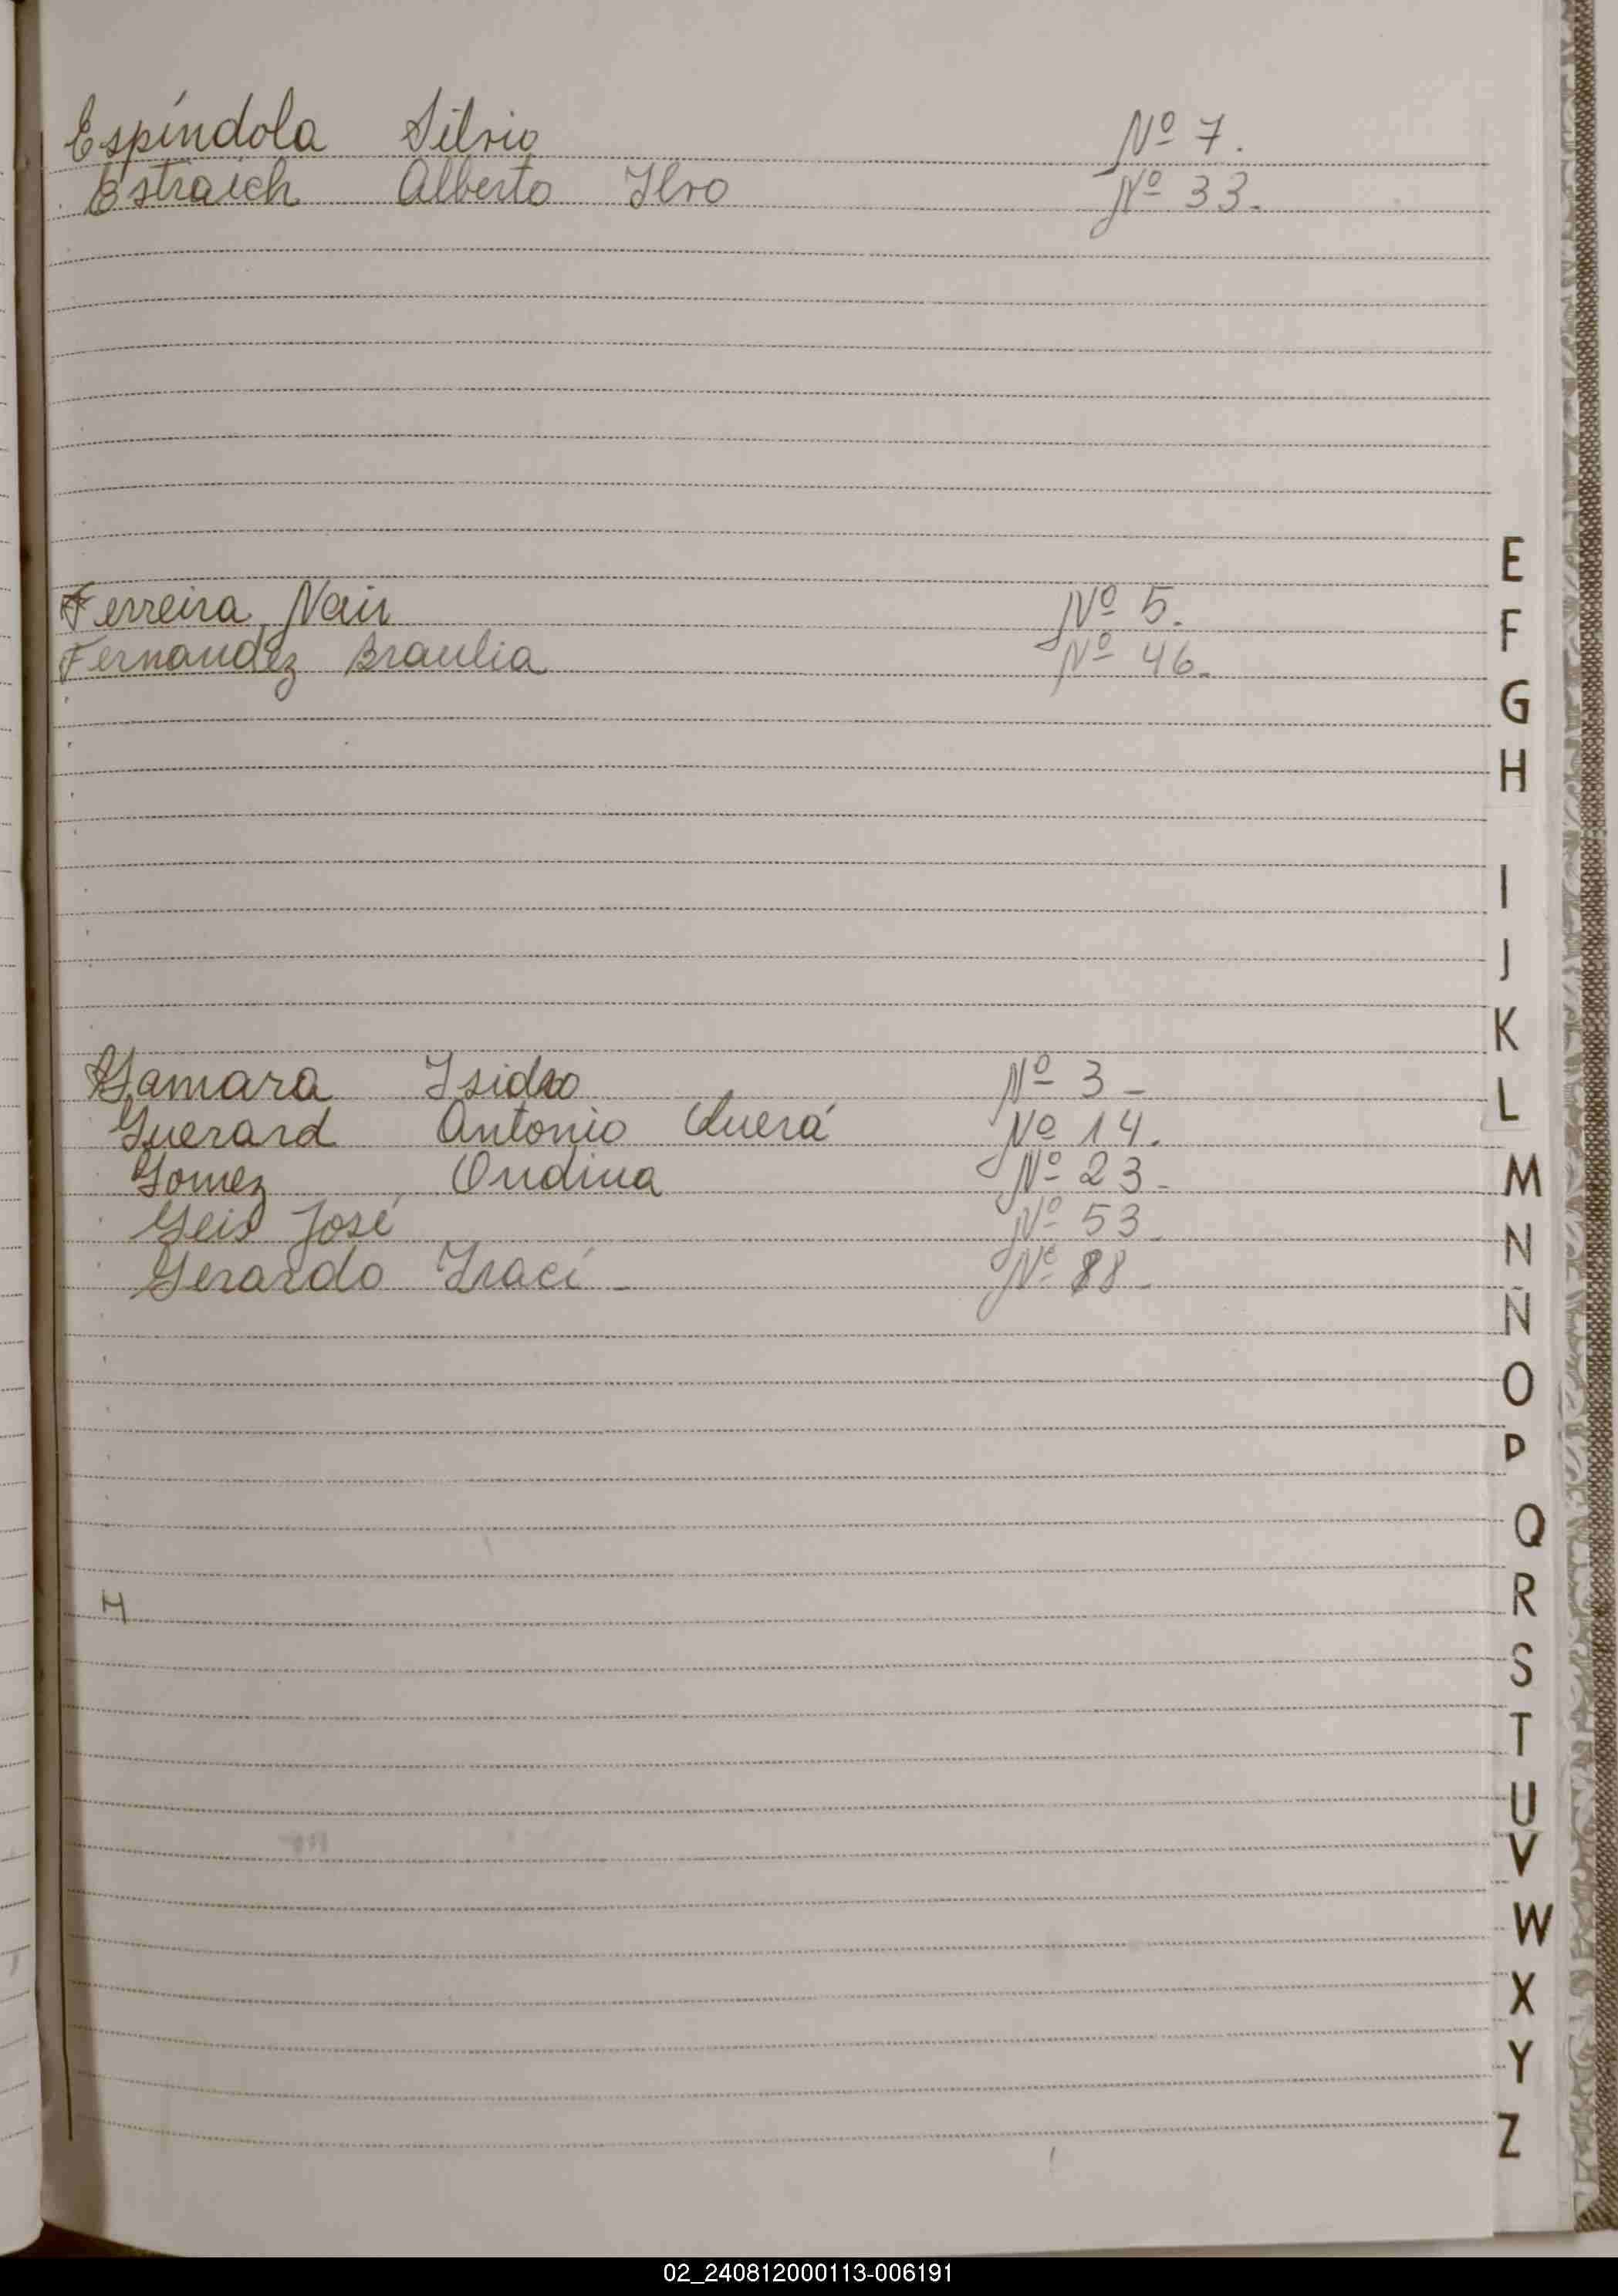 Espíndola Silvio Nº 7.
Estraich Alberto Ilvo Nº 33.
E
Ferreira Nair Nº 5.
F
Fernandez Braulia Nº 46.
G
H
I
J
K
Gamara Isidro Nº 3 -
L
Guerard Antonio Querá Nº 14.
Gomez Ondina Nº 23 -
M
Geis José Nº 53 -
N
Gerardo Iraci - Nº 88 -
Ñ
O
P
Q
H
R
S
T
U
V
W
X
Y
Z
02_240812000113-006191